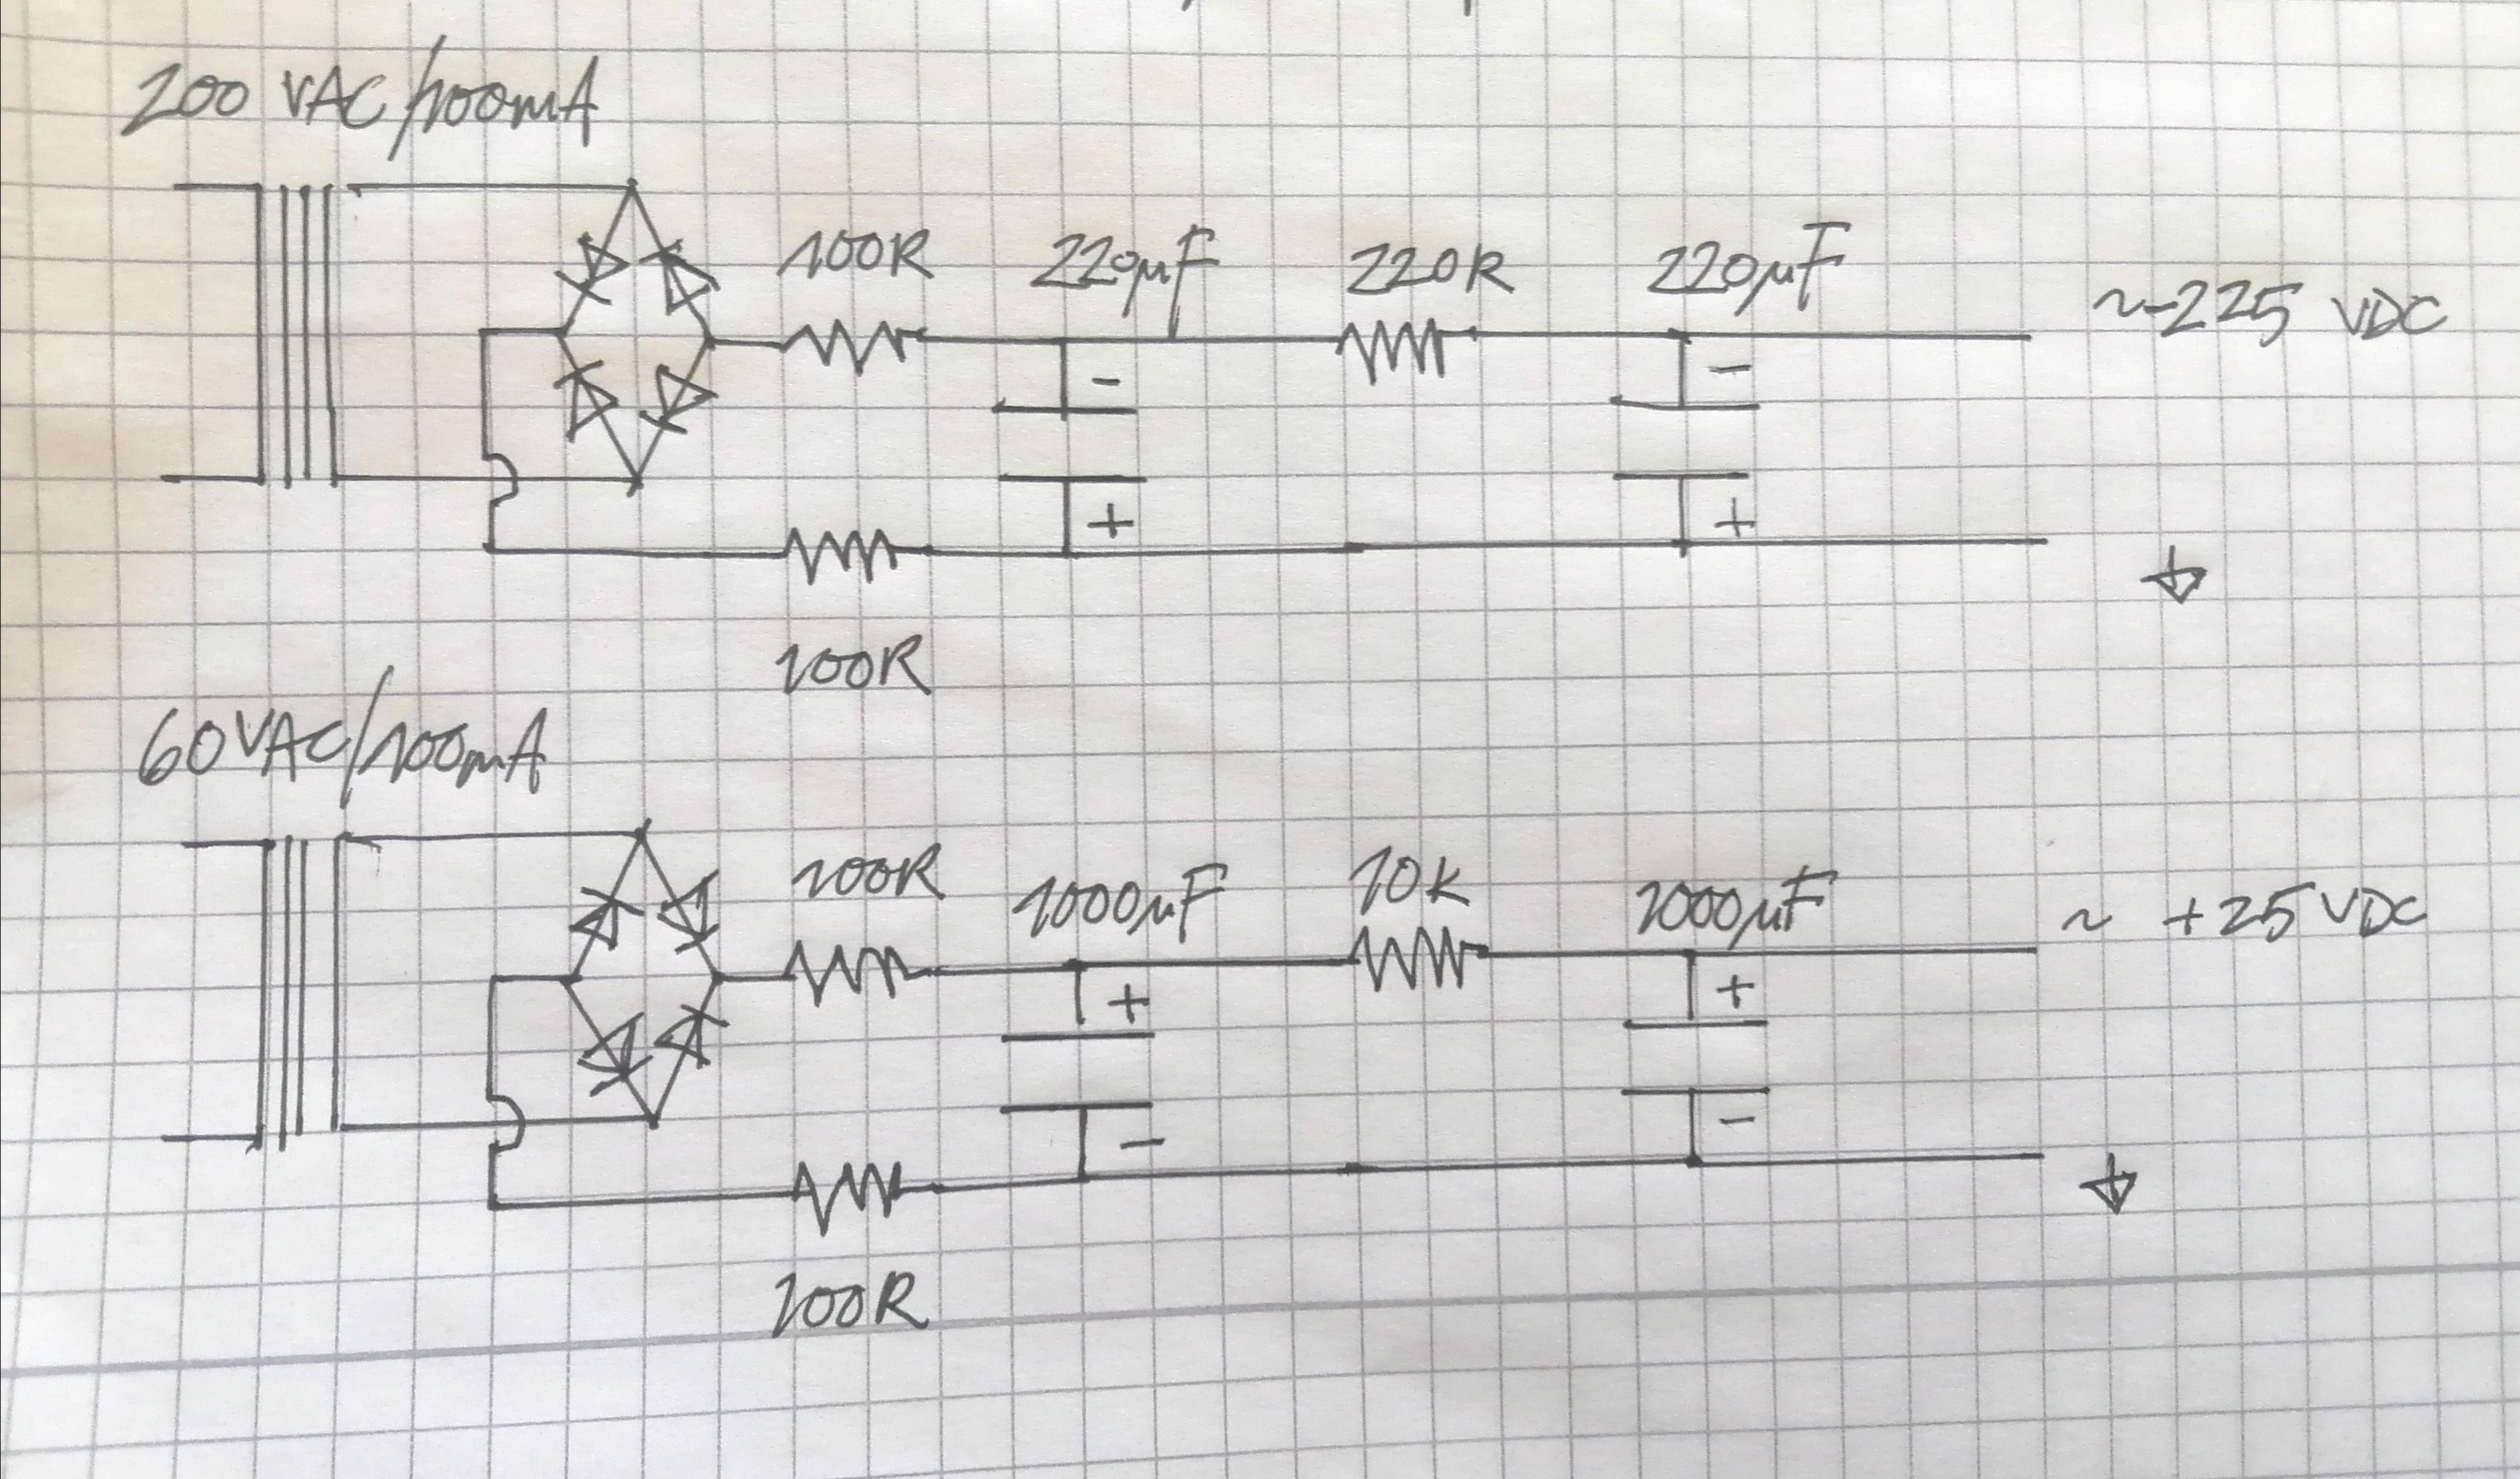 200 VAC/100mA
100R 220µF 220R 220µF ~-225 VDC
- -
+ +
100R
60VAC/100mA
100R 1000µF 10K 1000µF ~ +25VDC
+ +
- -
100R